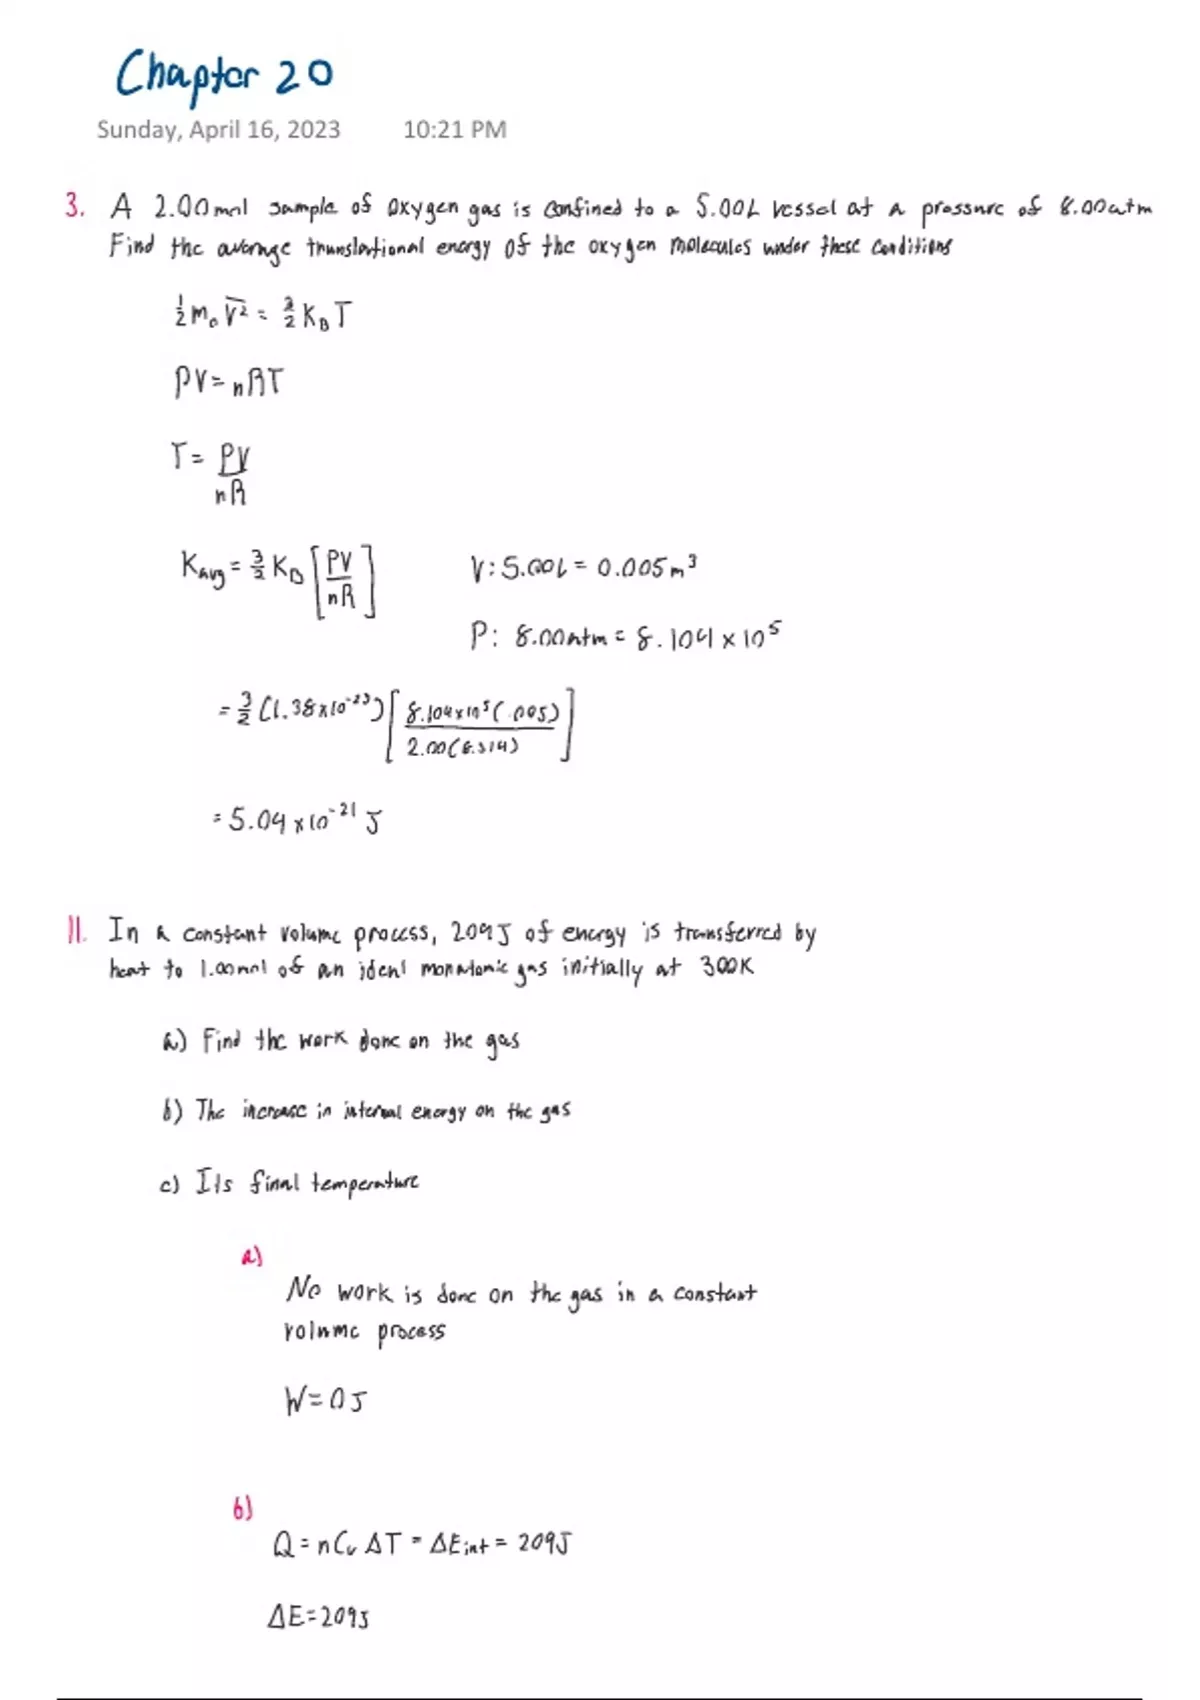 Chapter 20
Sunday, April 16, 2023 10:21 PM
3. A 2.00 mol sample of oxygen gas is confined to a 5.00L vessel at a pressure of 8.00atm
Find the average translational energy of the oxygen molecules under these conditions
½ m₀ v̅² = 3/2 K_B T
PV = nRT
T = PV/nR
K_avg = 3/2 K_B [PV/nR] V: 5.00L = 0.005 m³
P: 8.00atm = 8.104 x 10⁵
= 3/2 (1.38 x 10⁻²³) [8.104 x 10⁵ (.005) / 2.00 (8.314)]
= 5.04 x 10⁻²¹ J
11. In a constant volume process, 209J of energy is transferred by
heat to 1.00mol of an ideal monatomic gas initially at 300K
a) Find the work done on the gas
b) The increase in internal energy on the gas
c) Its final temperature
a)
No work is done on the gas in a constant
volume process
W = 0J
b)
Q = nCᵥ ΔT = ΔEint = 209J
ΔE = 209J